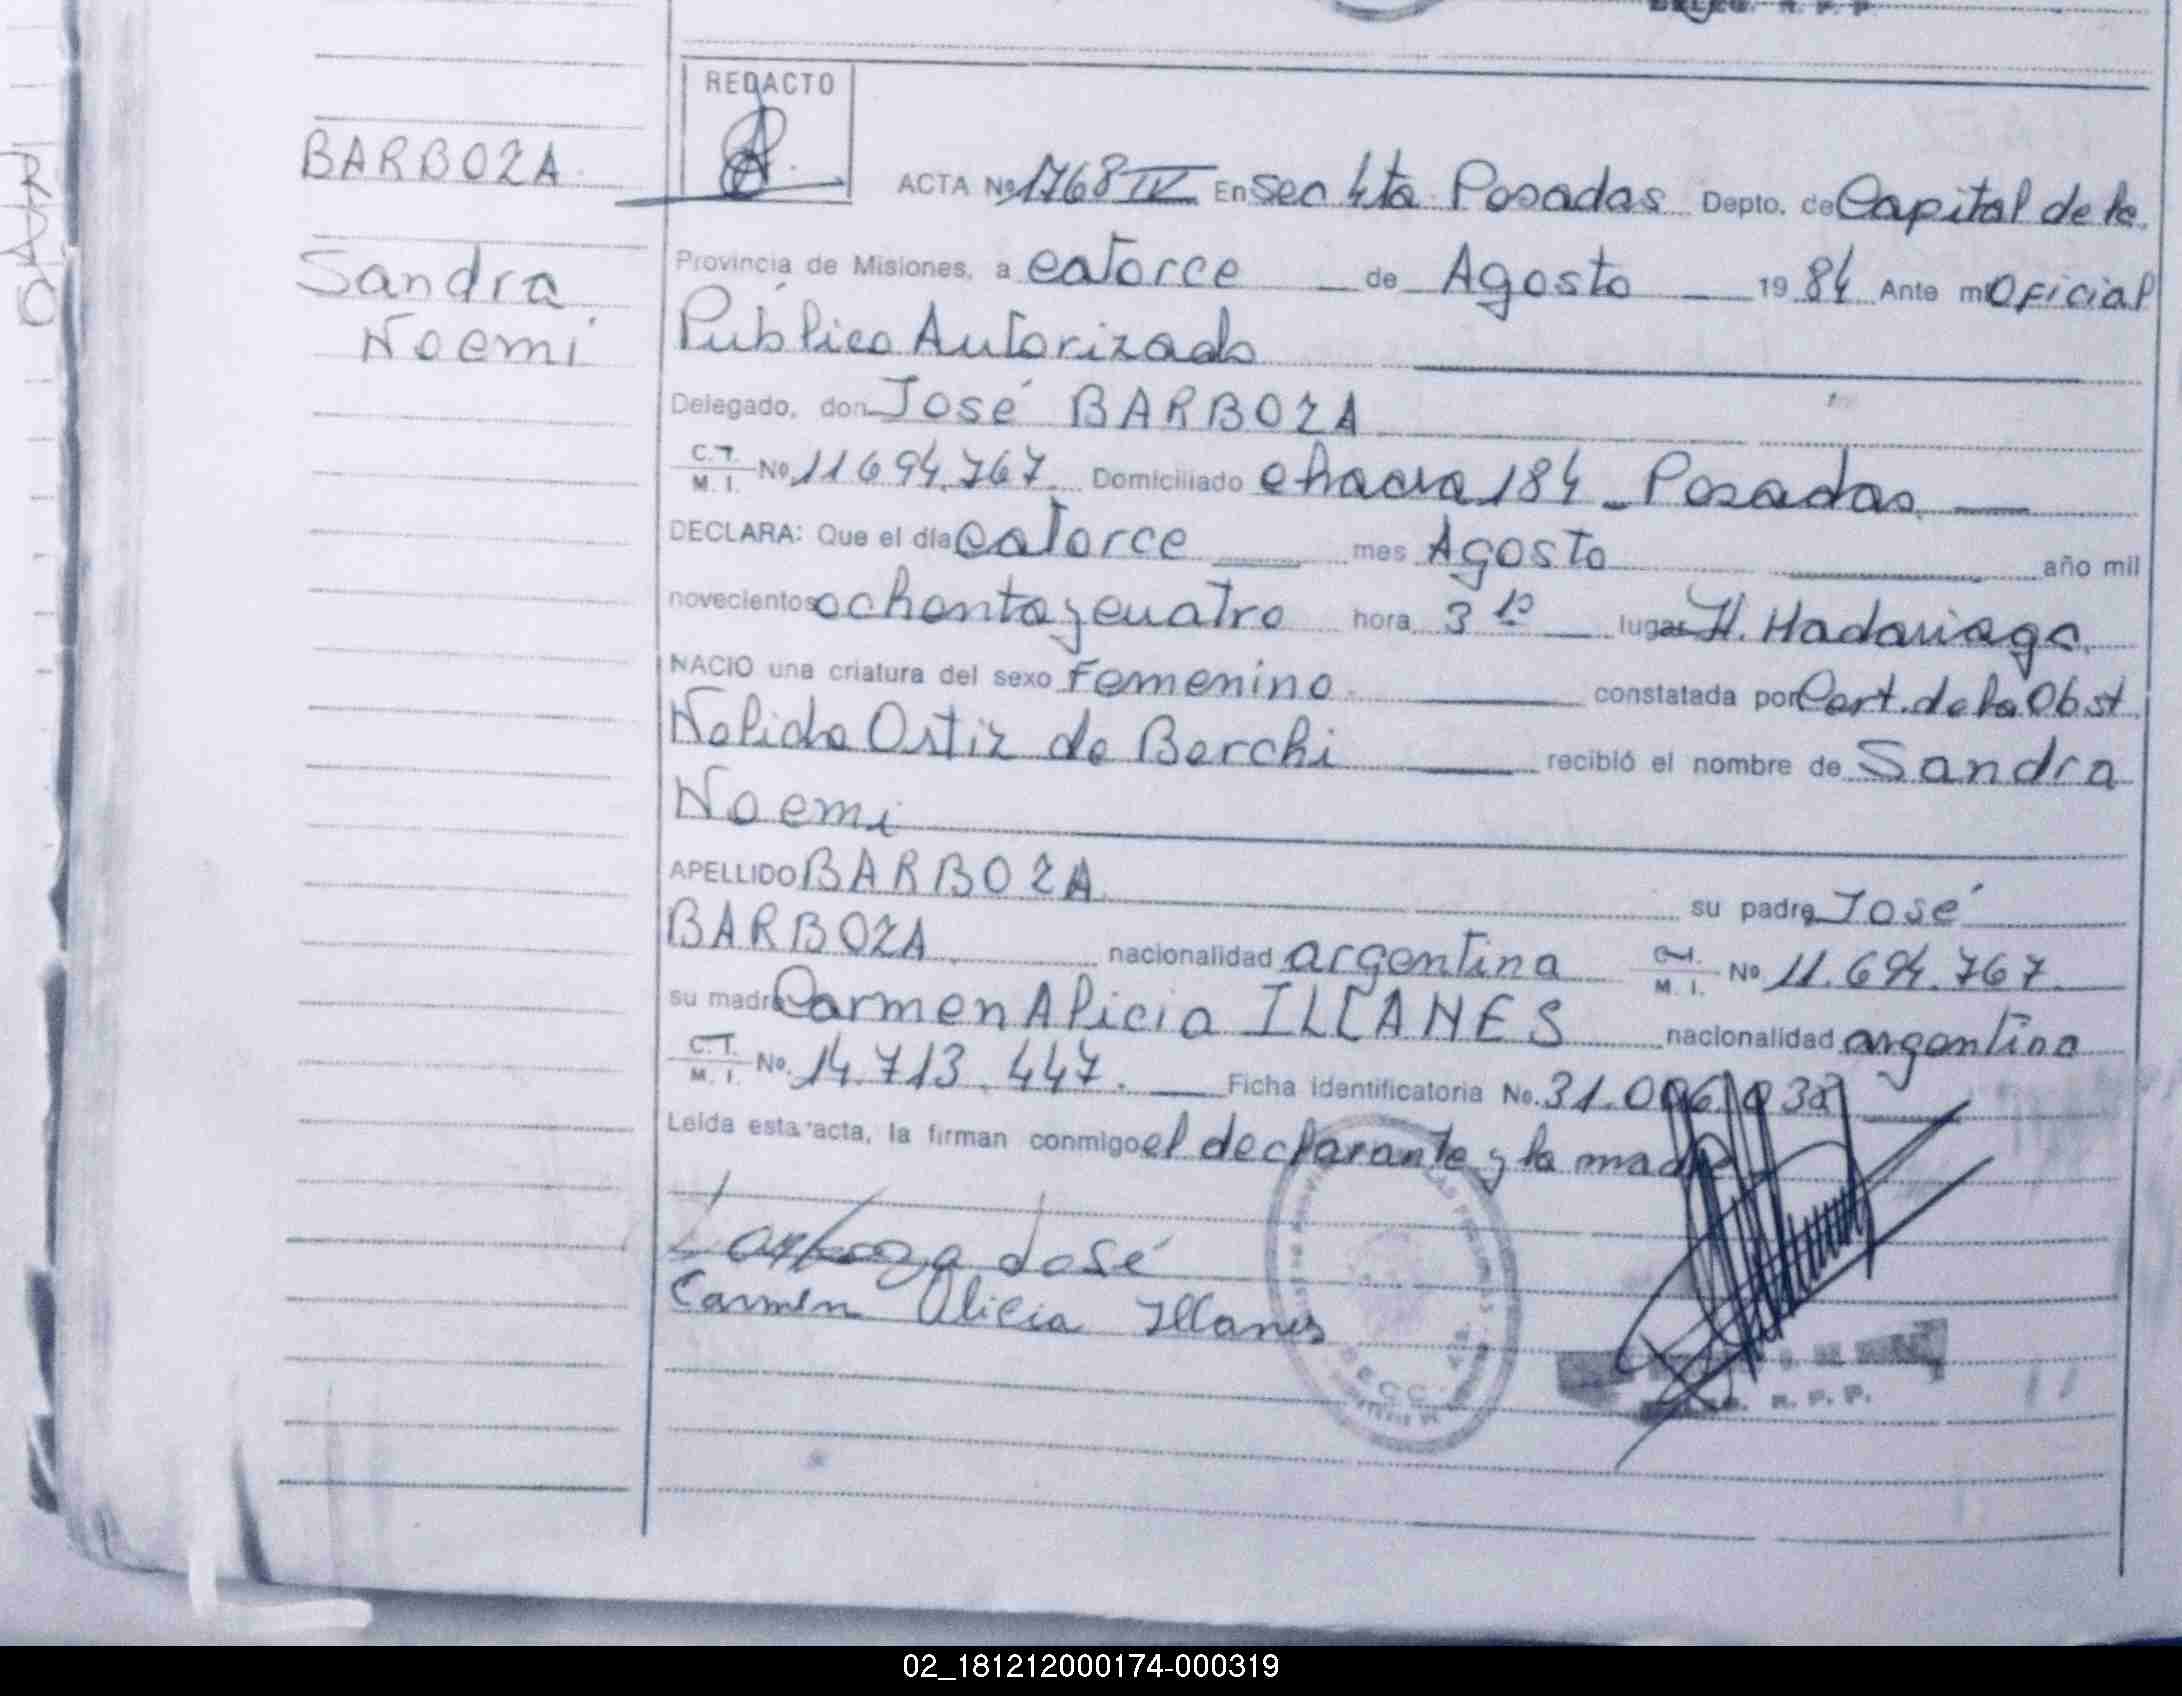 DELEG. R. P. P
REDACTO
BARBOZA
Sandra
Noemi
ACTA Nº 1768 IV En Sec 4ta Posadas Depto. de Capital de la
Provincia de Misiones, a catorce de Agosto 1984 Ante mi Oficial
Público Autorizado
Delegado, don José BARBOZA
C.T. M. I. Nº 11694.767 Domiciliado chacra 184 - Posadas
DECLARA: Que el día catorce mes Agosto año mil
novecientos ochenta y cuatro hora 3 10 lugar H. Madariaga
NACIO una criatura del sexo Femenino constatada por Cert. de la Obst.
Nelida Ortiz de Berchi recibió el nombre de Sandra
Noemi
APELLIDO BARBOZA su padre José
BARBOZA nacionalidad argentina M. I. Nº 11.694.767.
su madre Carmen Alicia ILLANES nacionalidad argentina
C.T. M. I. No. 14.713.447. Ficha identificatoria No. 31.006.038
Leída esta acta, la firman conmigo el declarante y la madre
Barboza José
Carmen Alicia Illanes
R. P. P.
02_181212000174-000319